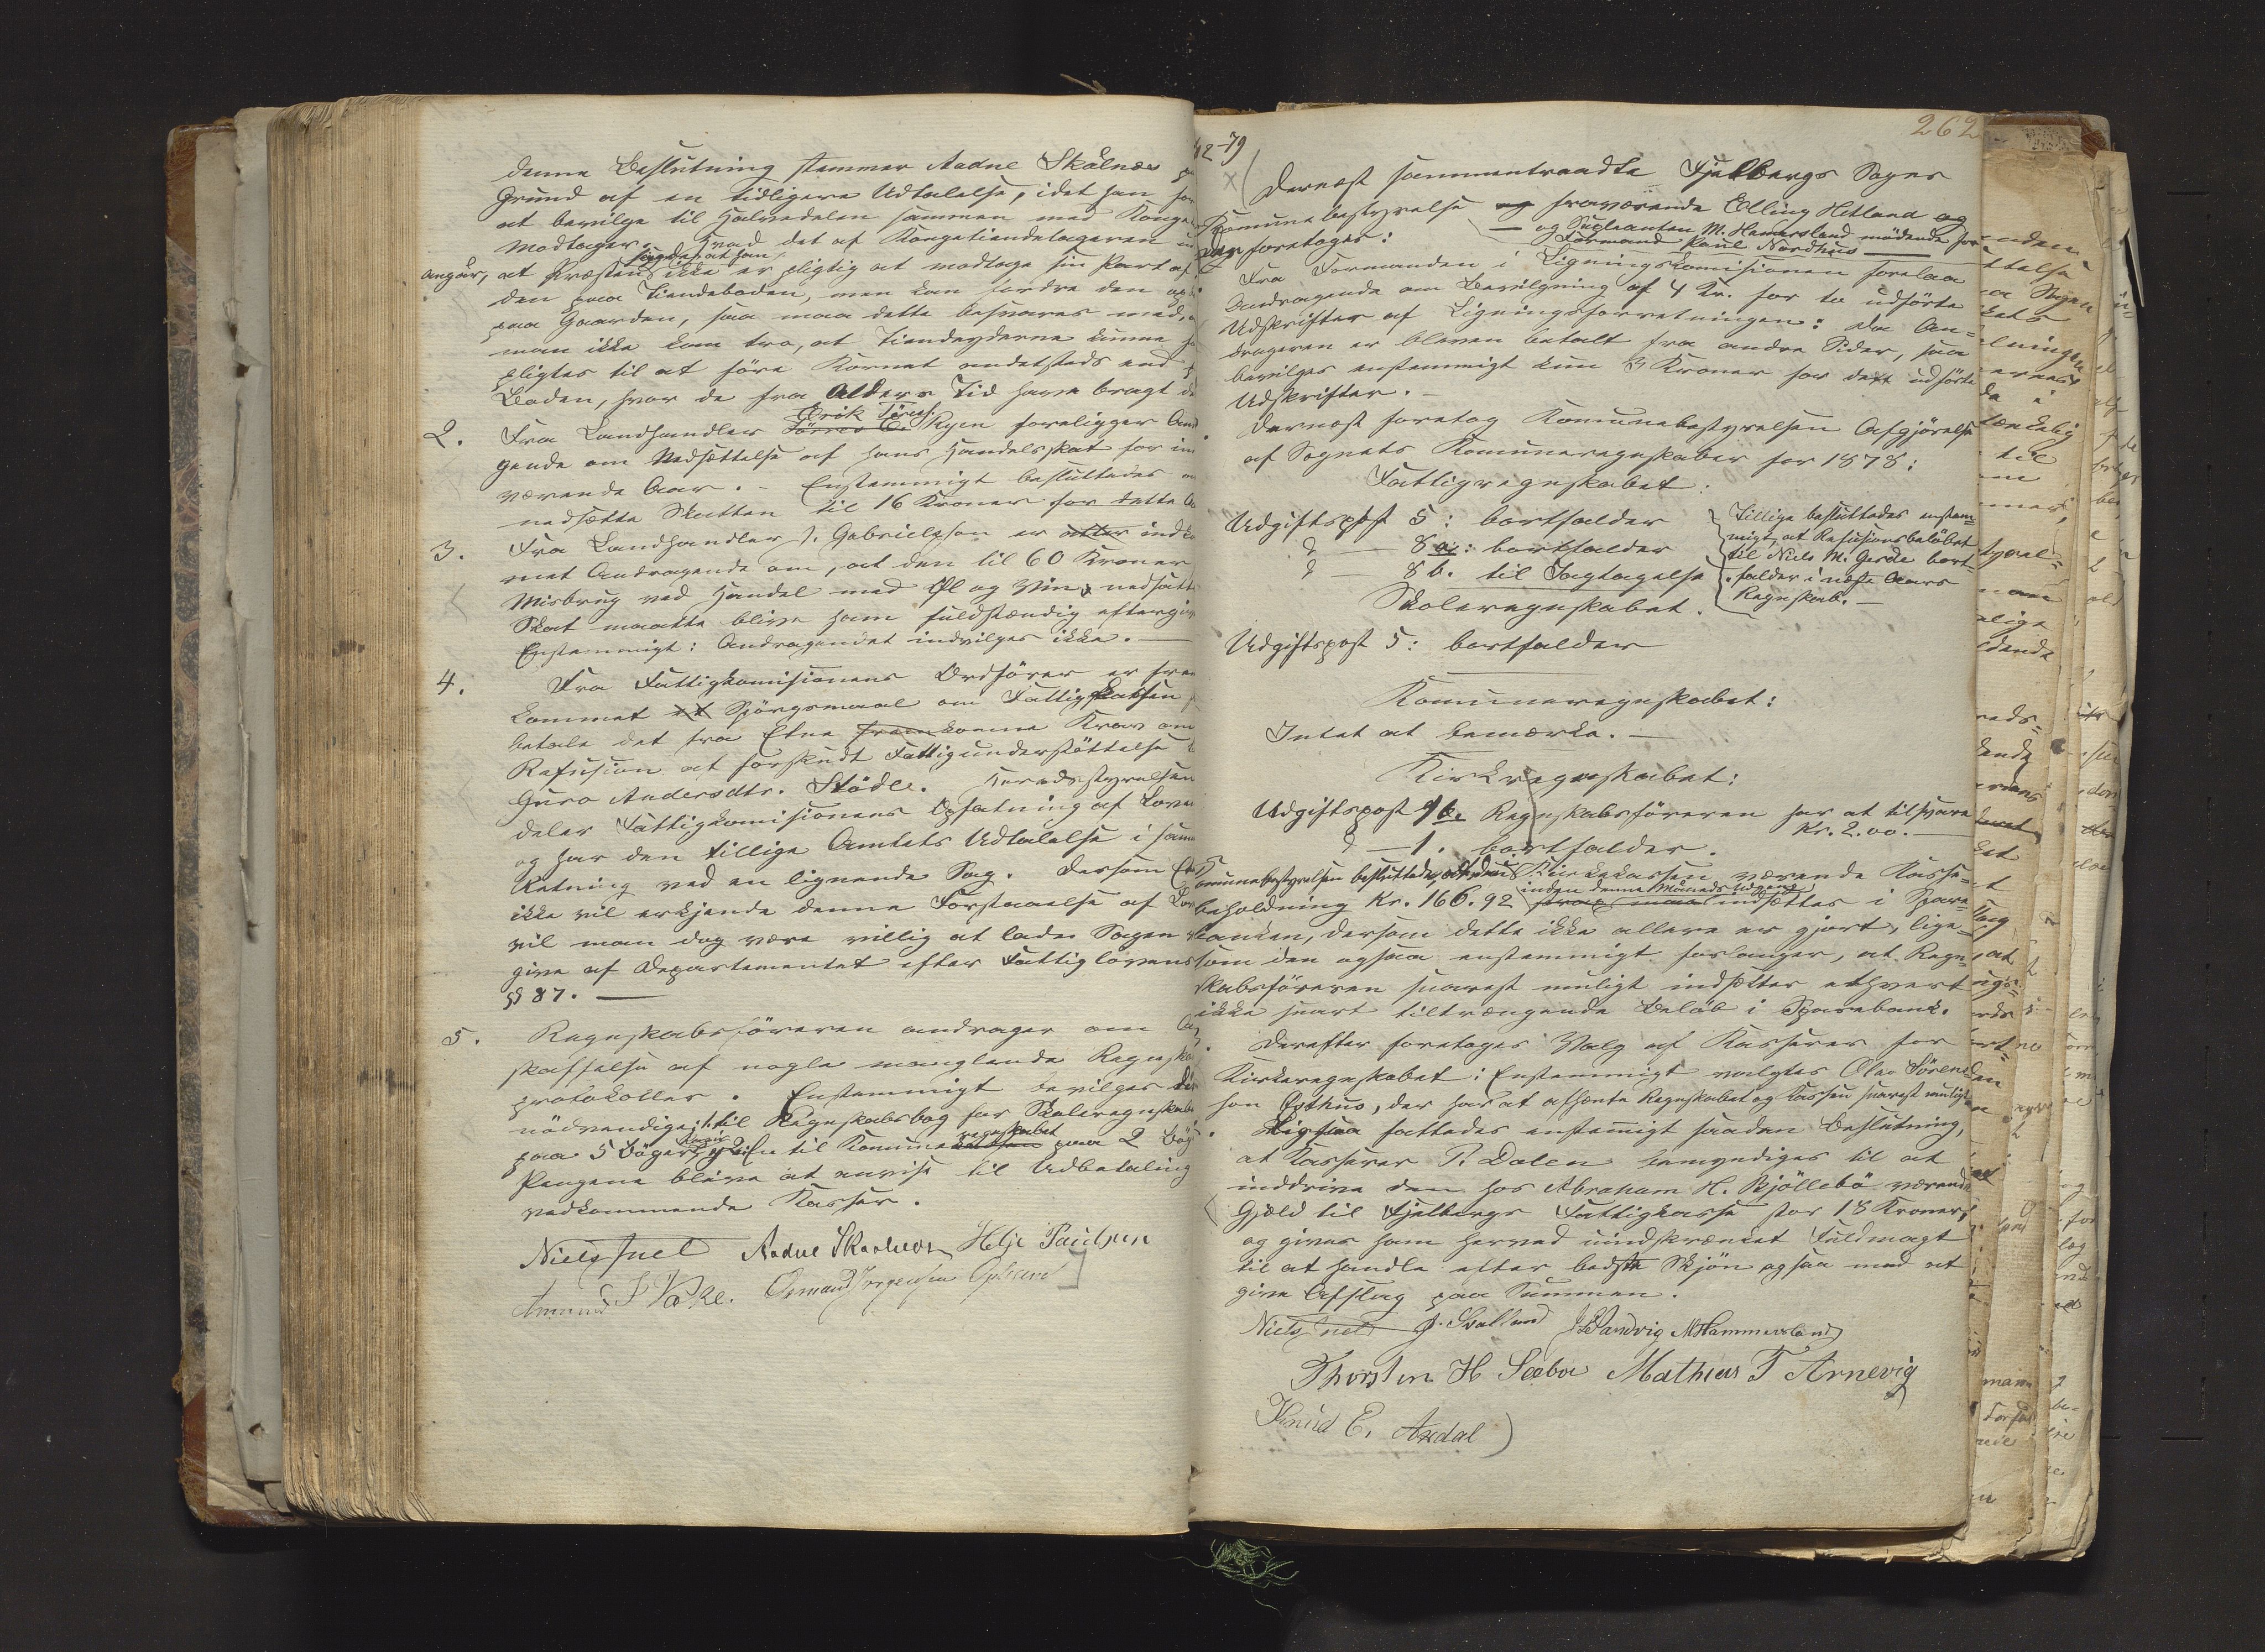 denne Beslutning stemmer Aadne Skålnæs
Grund af en tidligere Udtalelse, idet han
at bevilge til Halvedelen sammen med Konge
Modtager. Hvad det af Kongetiendetageren
sagdes at han
angår, at Præsten ikke er pligtig at modtage sin Part af
den paa Tiendeboden, men kan fordre den
paa Gaarden, saa maa dette besvares med,
man ikke kan tro, at Tiendeyderne kunne
pligtes til at före Kornet andetsteds end
Boden, hvor de fra Alders Tid have bragt
Erik Törres.
2. Fra Landhandler Törres E. Ryen foreligger And
gende om Nedsættelse af hans Handelsskat for
værende Aar. - Enstemmigt besluttedes
nedsætte Skatten til 16 Kroner for dette
3. Fra Landhandler J. Gabrielsen er atter indko
met Andragende om, at den til 60 Kroner
Misbrug ved Handel med Öl og Vin nedsatte
Skat maatte blive ham fuldstændig eftergiv
Enstemmigt: Andragendet indvilges ikke. —
4. Fra Fattigkomisionens Ordförer er frem
kommet Spörgsmaal om Fattigkassen
betale det fra Etne fremkomne Krav om
Refusion at forskudt Fattigunderstöttelse
Guro Andersdtr. Stödle. Heredsstyrelsen
deler Fattigkomisionens Opfatning af Loven
og har den tillige Amtets Udtalelse i samme
Retning ved en lignende Sag. Dersom
ikke vil erkjende denne Forstaaelse af Lov
vil man dog være villig at lade Sagen
give af Departementet efter Fattiglovens
§§ 87. —
5. Regnskabsföreren andrager om
skaffelse af nogle manglende Regnskabs
protokoller. Enstemmigt bevilges
nödvendige: til Regnskabsbog for Skoleregnskab
regnskabet
paa 5 Bøger, og En til Komunekassen paa 2 Bög
Pengene blive at anvise til Udbetaling
vedkommende Kasser.
Niels Juel Aadne Skaalnes Helje Paulsen
Amund S Vake. Osmund Jørgensen Opheim
262
12-79
× Dernæst sammentraadte Fjelbergs Sogns
Komunebestyrelse og fraværende Elling Hetland og
— og Supleanten M. Hamersland mödende for
Formand Paul Nordhus —
Der foretoges:
Fra Formanden i Ligningskomisionen forelaa
Andragende om Bevilgning af 4 Kr. for to udförte
Udskrifter af Ligningsforretningen: Da An-
drageren er bleven betalt fra andre Sider, saa
bevilges enstemmigt kun 3 Kroner for dext udförte
Udskrifter. —
Dernæst foretog Komunebestyrelsen Afgjörelse
af Sognets Komuneregnskaber for 1878:
Fattigregnskabet:
Udgiftspost 5: bortfalder
— 8 a: bortfalder
— 8 b. til Iagtagelse
Tillige besluttedes enstem-
migt, at Refusionsbelöbet
til Niels M. Gerde bort-
falder i næste Aars
Regnskab. —
Skoleregnskabet.
Udgiftspost 5: bortfalder
Komuneregnskabet:
Intet at bemærke. —
Kirkeregnskabet:
Udgiftspost 1 b. Regnskabsföreren har at tilsvare
Kr. 2.00. —
— 1. bortfalder.
Komunebestyrelsen besluttede, at den i Kirkekassen værende Kasse-
inden denne Maaneds Udgang
beholdning Kr. 166.92 strax maa indsættes i Spare-
banken, dersom dette ikke allere er gjort, lige-
som den ogsaa enstemmigt forlanger, at Regn-
skabsföreren snarest muligt indsætter ethvert
ikke snart tiltrængende Belöb i Sparebank.
Derefter foretoges Valg af Kasserer for
Kirkeregnskabet: Enstemmigt valgtes Olav Sören
sen Østhus, der har at afhente Regnskabet og Kassen snarest muligt
Ligesaa fattedes enstemigt saadan Beslutning,
at Kasserer P. Dalen bemyndiges til at
inddrive den hos Abraham H. Kjöllebö værende
Gjæld til Fjelbergs Fattigkasse stor 18 Kroner,
og gives ham herved uindskrænket Fuldmagt
til at handle efter bedste Skjön ogsaa med at
give Afslag paa Summen.
Niels Juel J. Svalland J Sandvig M Hammersland
Thorsten H Sæbø Mathias T Arnevig
Knud E. Axdal